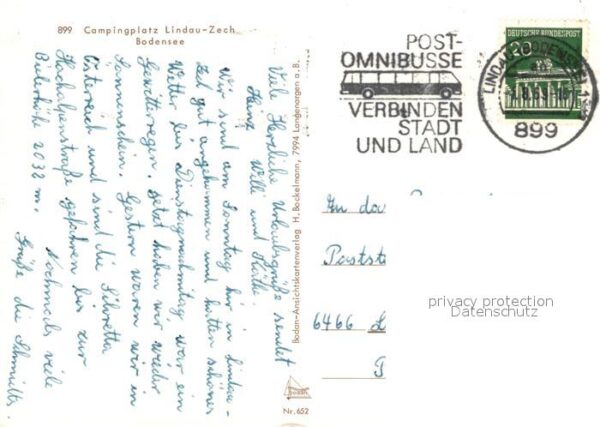 899 Campingplatz Lindau-Zech
Bodensee
Viele Herzliche Urlaubsgrüße sendet
Heinz Willi und Käthe
Wir sind am Sonntag hir in Lindau-
Zech gut angekommen und hatten schönes
Wetter bis Dienstagnachmittag war ein
Gewitterregen. Jetzt haben wir wieder
Sonnenschein. Gestern waren wir in
Österreich und sind die Silvretta
Hochalpenstraße gefahren bis zur
Bielerhöhe 2032 m.
Nochmals viele
Grüße die Schmidts.
Bodan-Ansichtskartenverlag H. Bockelmann, 7994 Langenargen a. B.
bodan
Nr. 652
POST-
OMNIBUSSE
VERBINDEN
STADT
UND LAND
LINDAU (BODENSEE) 1
899
DEUTSCHE BUNDESPOST
20
An das
Postst
6466 L
privacy protection
Datenschutz